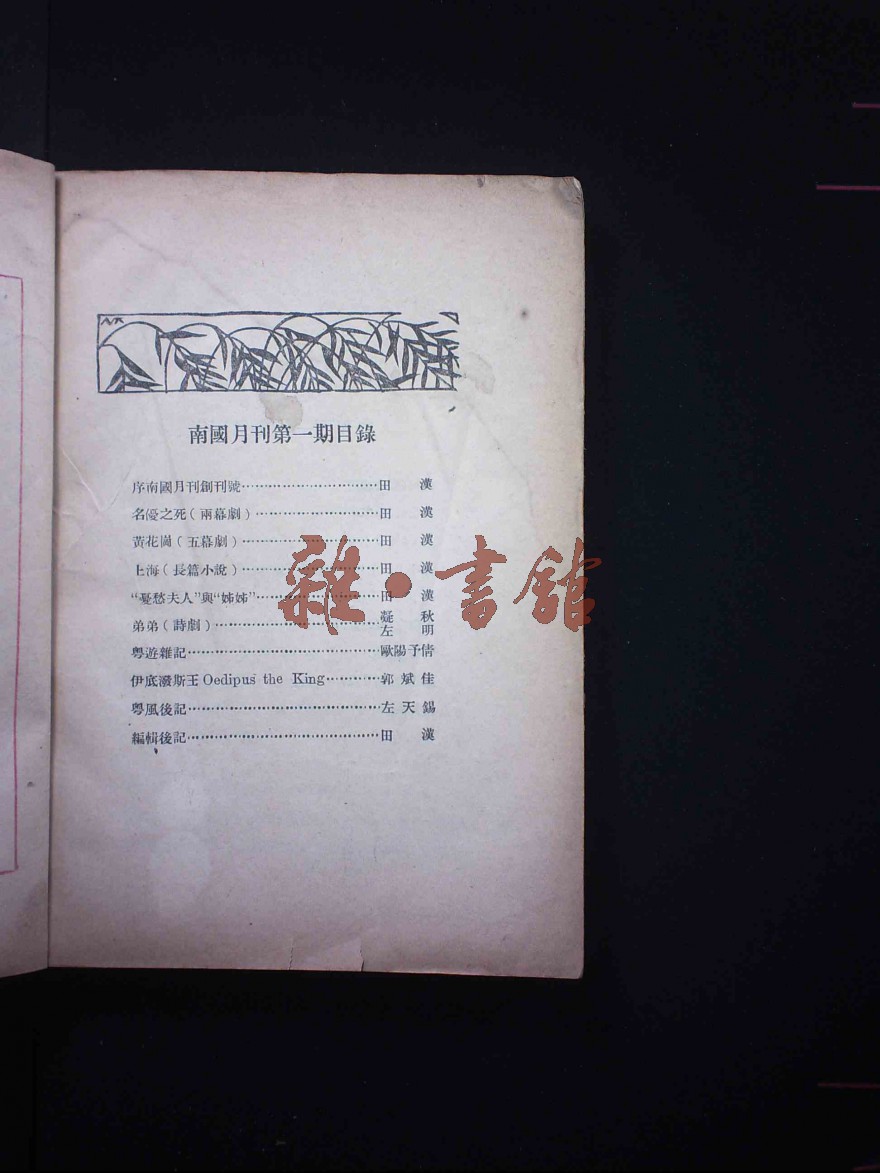 南國月刊第一期目錄
序南國月刊創刊號…………………………田 漢
名優之死(兩幕劇)………………………田 漢
黃花崗(五幕劇)…………………………田 漢
上海(長篇小說)…………………………田 漢
“憂愁夫人”與“姊姊”………………………田 漢
弟弟(詩劇)………………………………凝 秋
左 明
粵遊雜記……………………………………歐陽予倩
伊底潑斯王Oedipus the King…………郭斌佳
粵風後記……………………………………左天錫
編輯後記……………………………………田 漢
雜·書館